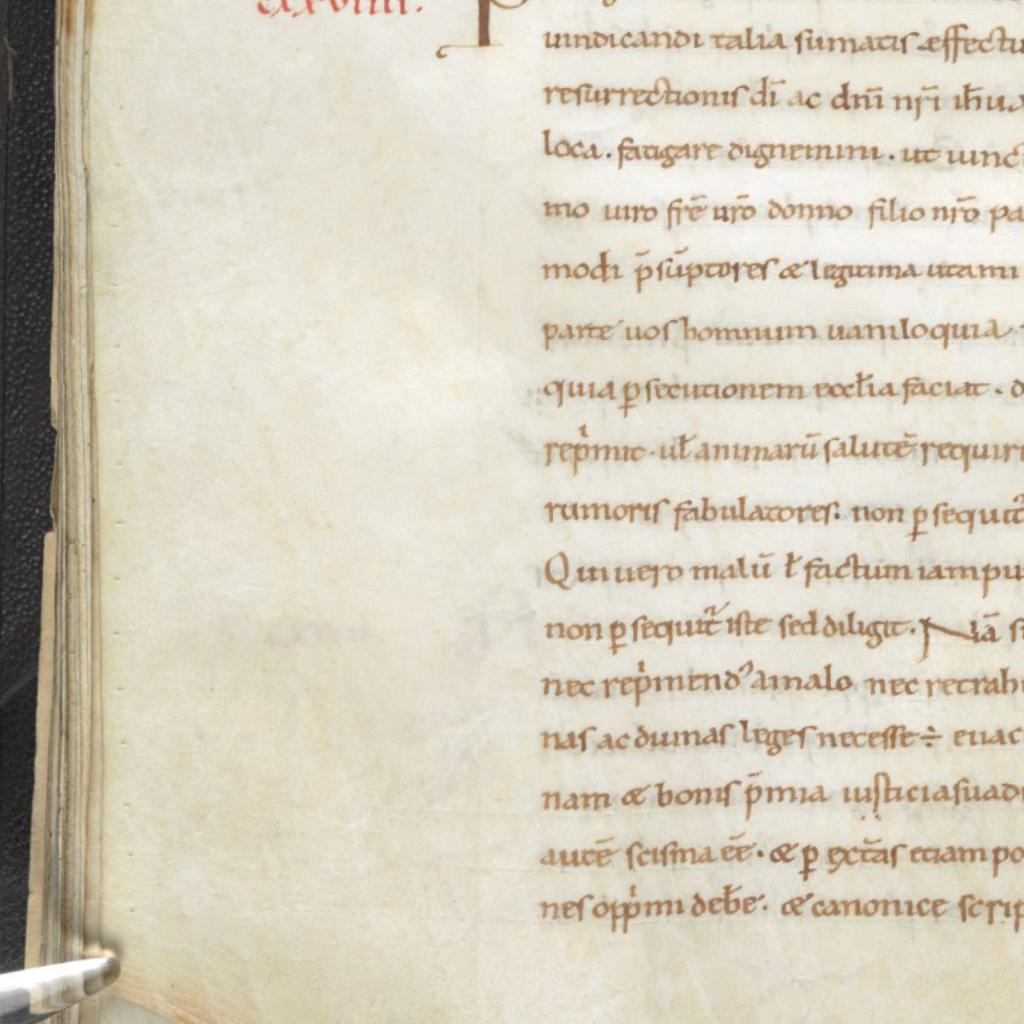 cxxviiii.
uindicandi talia sumatis æffectu
resurrectionis dī ac dn̄i nr̄i ih̄u
loca. fatigare dignemini. ut uinc
mo uiro fr̄e ur̄o domno filio nr̄o pa
modi p̄sūptores & legitima utamini
parte uos hominum uaniloquia
quia ꝑsecutionem eccl̄ia faciat. d
rep̍mit. ul̄ animarū salutē requiri
rumoris fabulatores. non ꝑsequit᷑
Qui uero malū l̄ factum iam pu
non ꝑsequit᷑ iste sed diligit. Nā s
nec rep̍mend᾽ a malo nec retrah
nas ac diuinas leges necesse ÷ euac
nam & bonis p̄mia iusticia suad
autē scisma eē. & ꝑ exct̄as etiam po
nes opp̍mi deb̄e. & canonice scrip